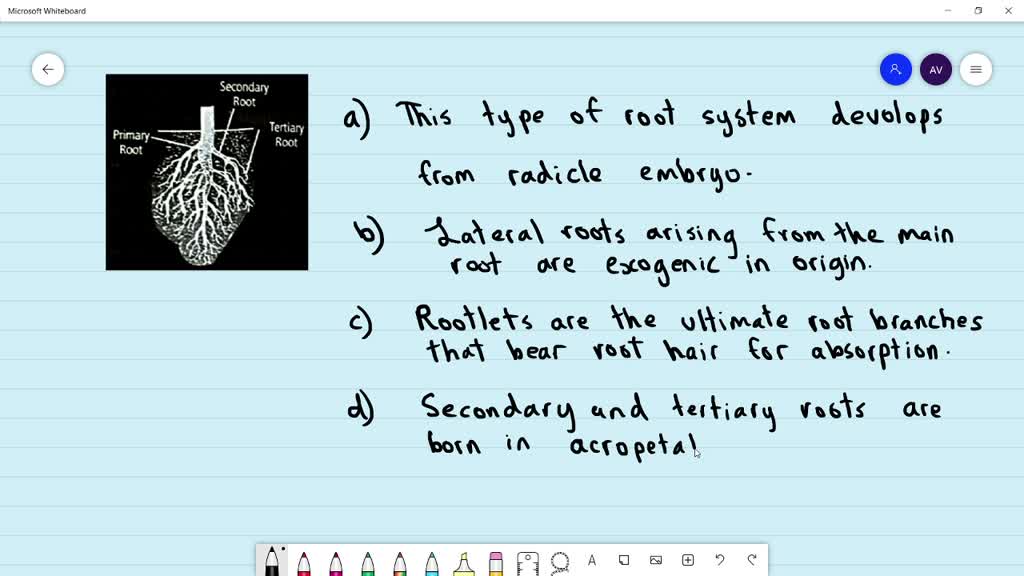 Microsoft Whiteboard
AV
Secondary
Root
Primary
Root
Tertiary
Root
a) This type of root system devolops
from radicle embryo.
b) Lateral roots arising from the main
root are exogenic in origin.
c) Rootlets are the ultimate root branches
that bear root hair for absorption.
d) Secondary and tertiary roots are
born in acropetal
A